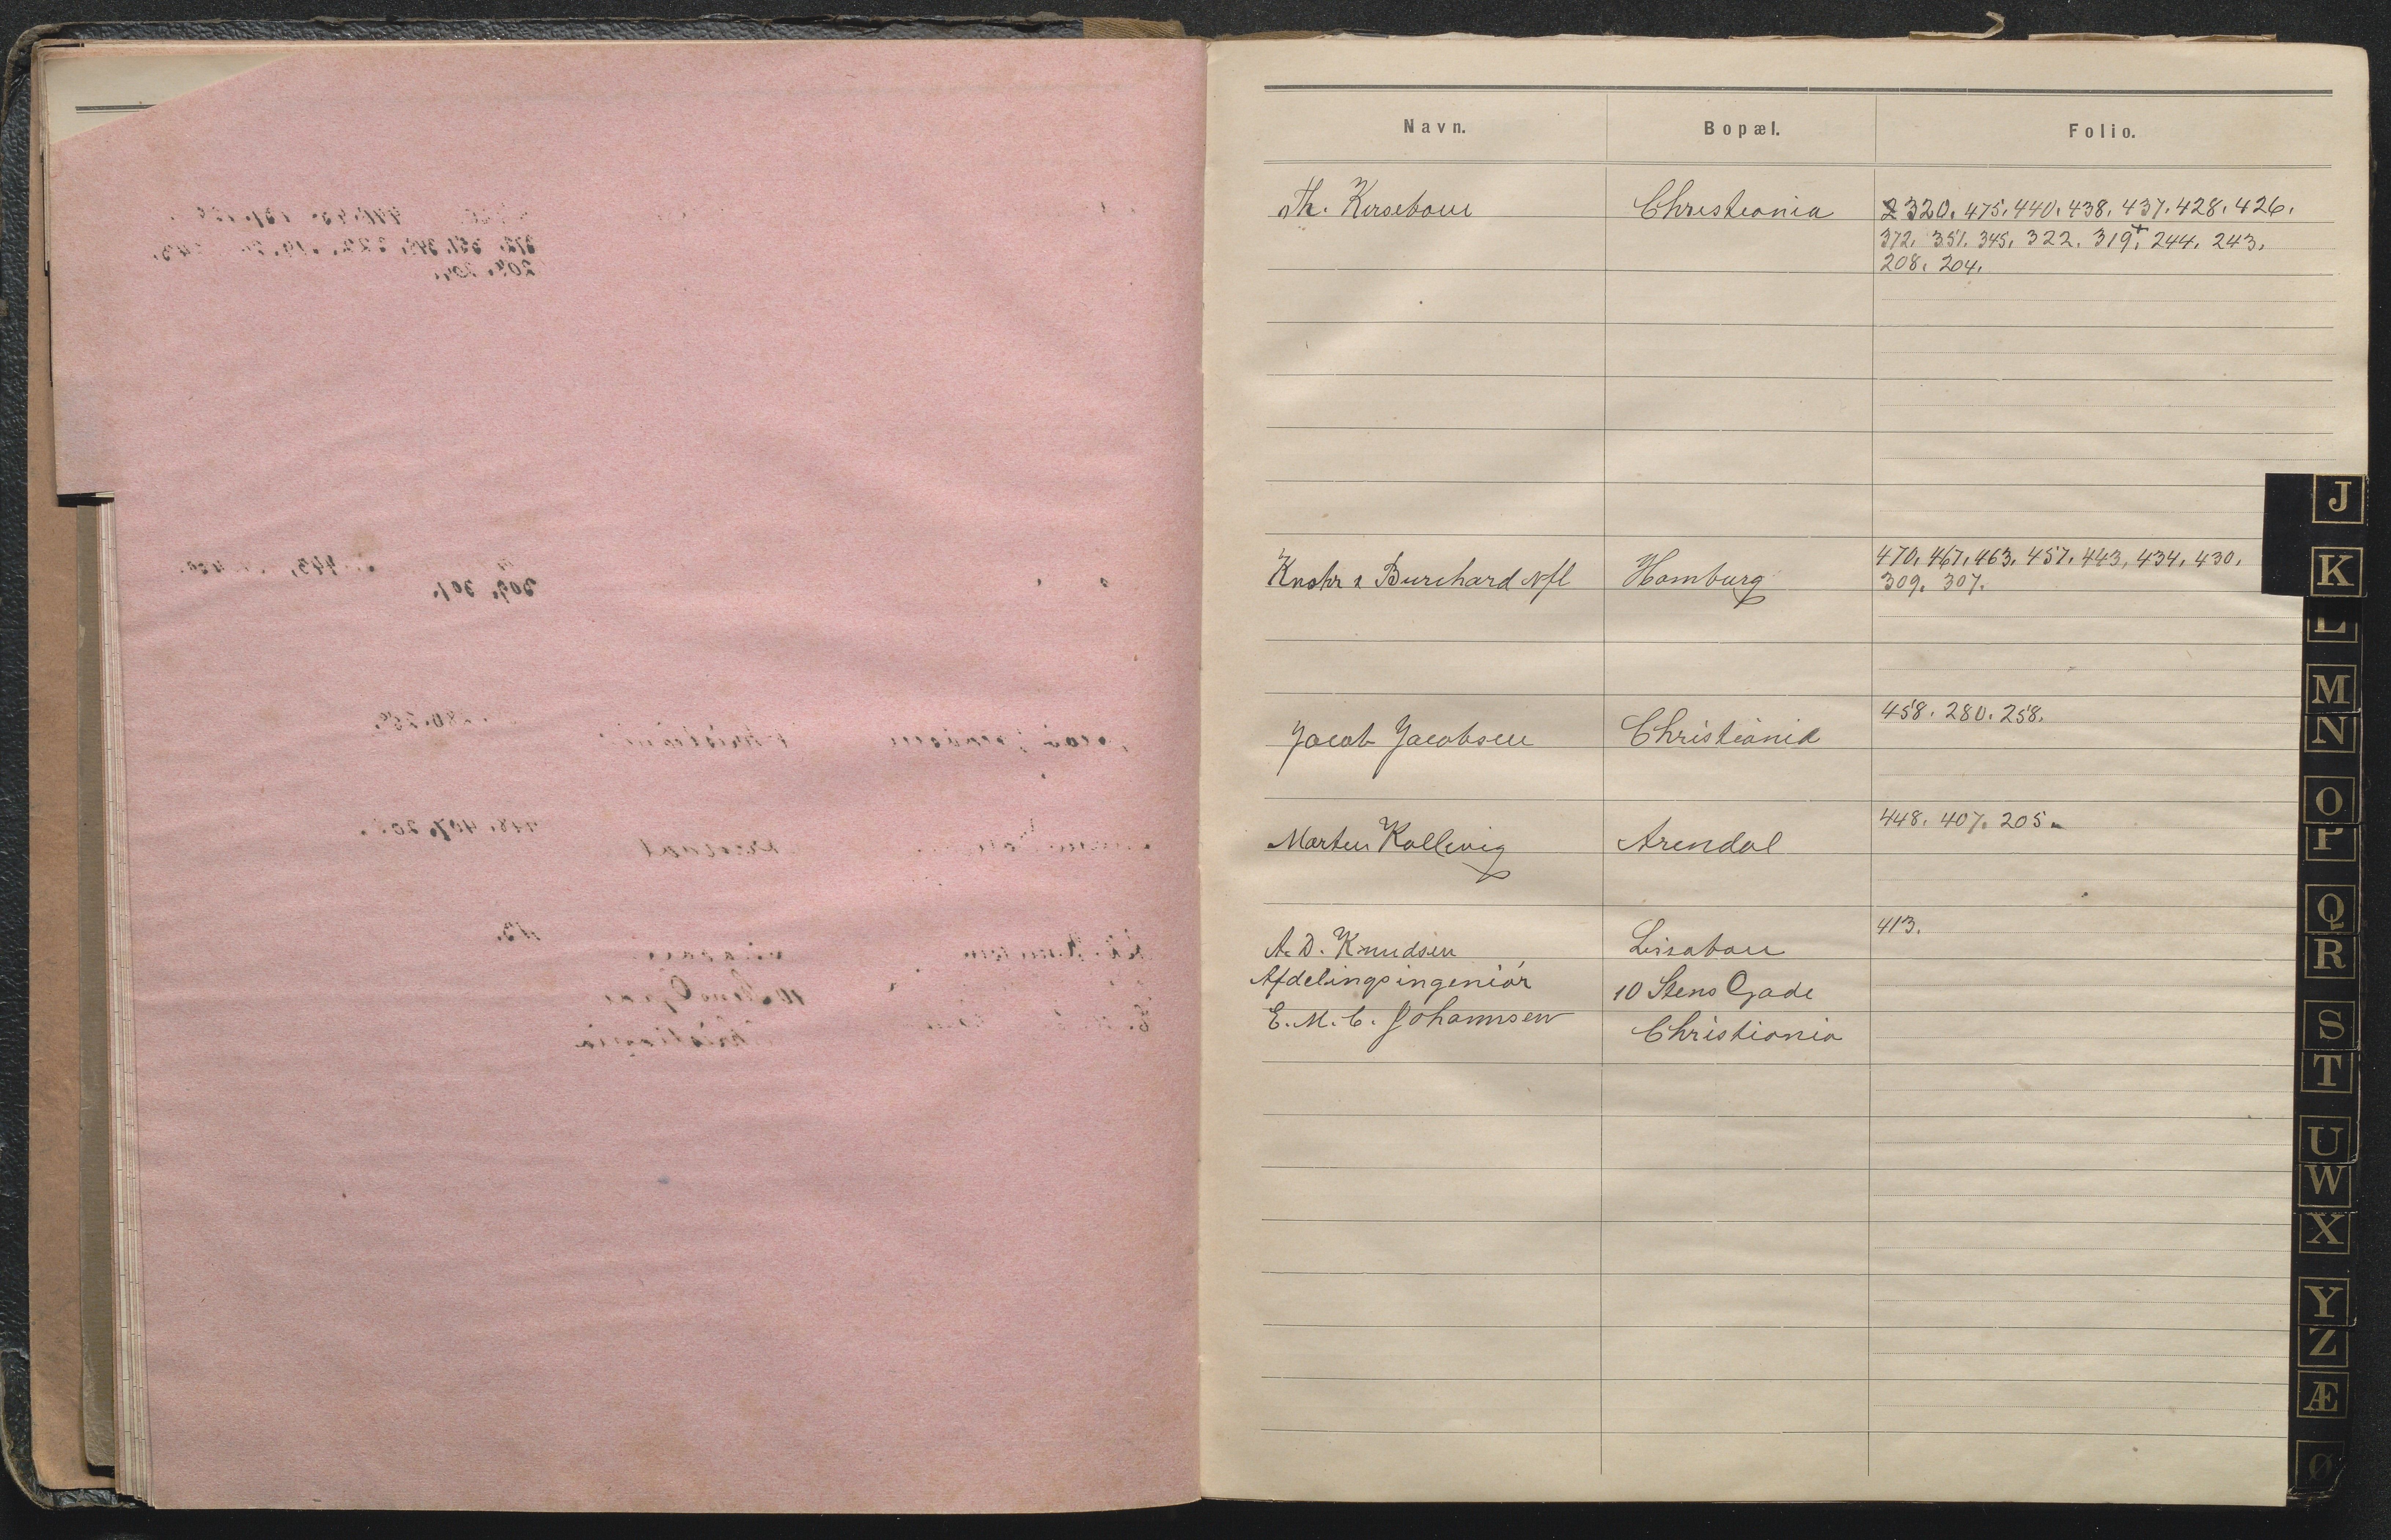 Navn. Bopæl. Folio.
Th. Kiersebom Christiania 2320. 475. 440. 438. 437. 428. 426.
372. 351. 345. 322. 319. + 244. 243.
208. 204.
470. 467. 463. 457. 443, 434, 430.
Knöhr & Burchard Nfl Hamburg 309. 307.
458. 280. 258.
Jacob Jacobsen Christiania
448. 407. 205.
Morten Kallevig Arendal
413.
A. D. Knudsen Lissabon
Afdelingsingeniór 10 Stens Gade
E. M. C. Johannsen Christiania
J
K
L
M
N
O
P
Q
R
S
T
U
W
X
Y
Z
Æ
Ø